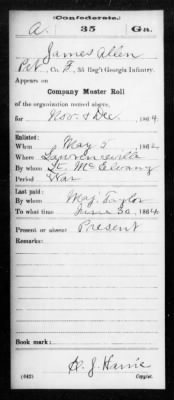 (Confederate.)
A. 35 Ga.
James Allen
Pvt, Co. F, 35 Reg't Georgia Infantry.
Appears on
Company Muster Roll
of the organization named above,
for Nov. & Dec. 1864
Enlisted:
When May 5 1862
Where Lawrenceville
By whom Lt. McElvany
Period War
Last paid:
By whom Maj. Taylor
To what time June 30, 1864
Present or absent Present
Remarks:
Book mark:
H. J. Harris
(642) Copyist.